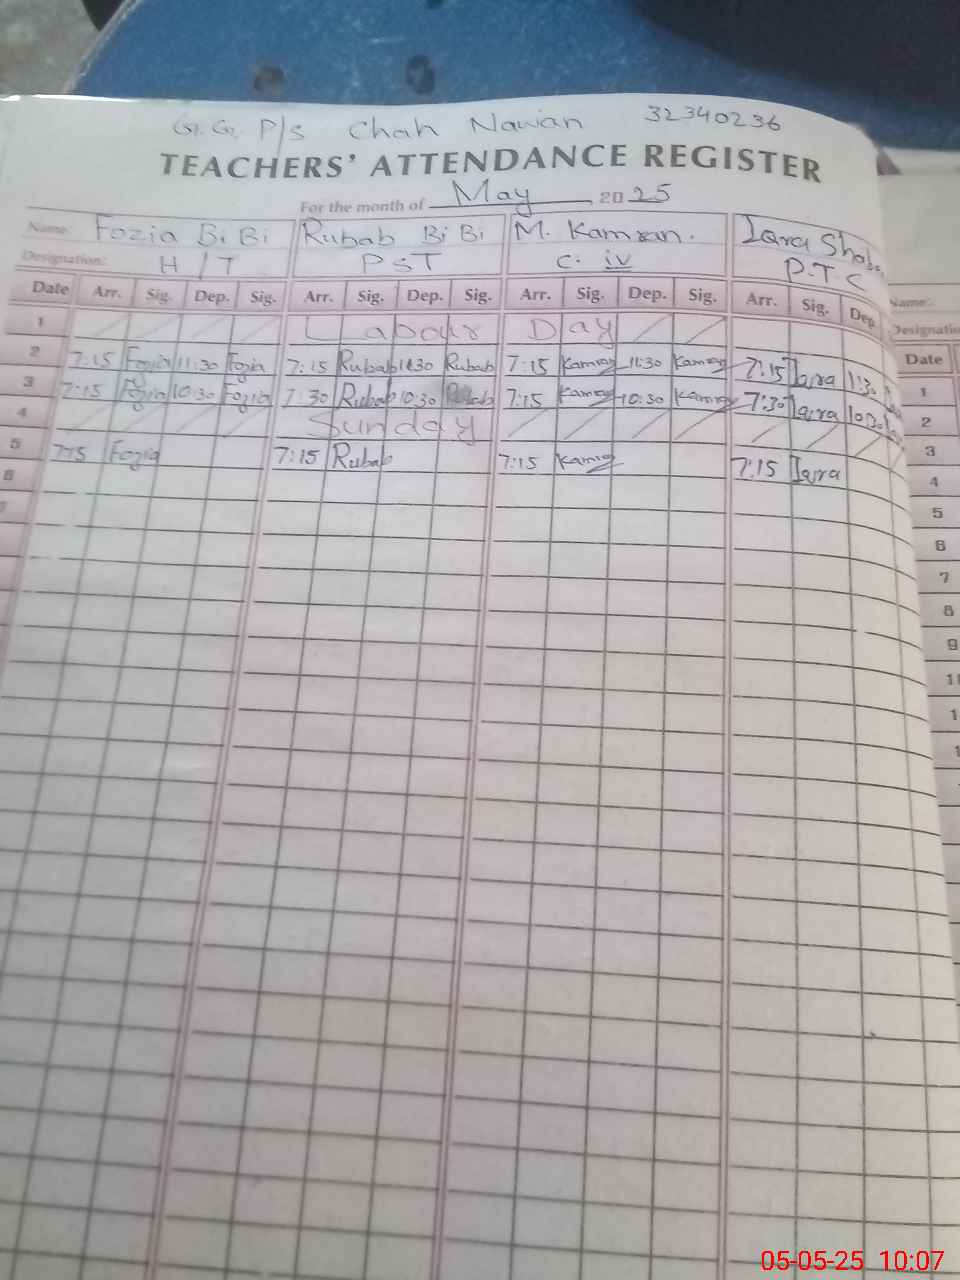 G. G. P/S Chah Nawan 32340236
TEACHERS' ATTENDANCE REGISTER
For the month of May 2025
Name: Fozia BiBi Rubab BiBi M. Kamran. Iqra
Designation: H/T PST C. iv P.T.C
Date Arr. Sig. Dep. Sig. Arr. Sig. Dep. Sig. Arr. Sig. Dep. Sig. Arr. Sig. Dep.
1 Labour Day
2 7:15 Fozia 11:30 Fozia 7:15 Rubab 11:30 Rubab 7:15 Kamran 11:30 Kamran 7:15 Iqra 11:30
3 7:15 Fozia 10:30 Fozia 7:30 Rubab 10:30 Rubab 7:15 Kamran 10:30 Kamran 7:30 Iqra 10:30
4 Sunday
5 7:15 Fozia 7:15 Rubab 7:15 Kamran 7:15 Iqra
6
7
Name:
Designation
Date
1
2
3
4
5
6
7
8
9
05-05-25 10:07